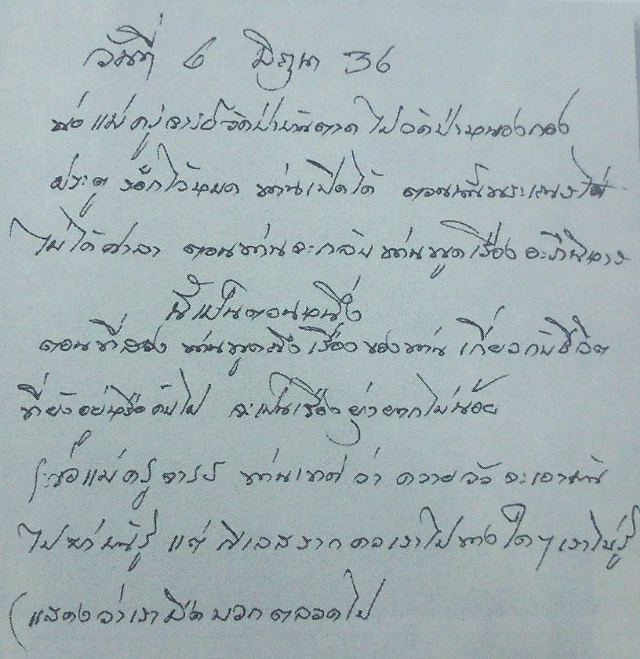 วันที่ 6 มิถุนา 36
พ่อแม่ครูจารย์วัดป่าบ้านตาด ไปวัดป่าหนองกอง
ประตู ล็อกไว้หมด ท่านเปิดได้ ตอนนั้นพระเณร
ไม่ได้ศาลา ตอนท่านจะกลับ ท่านพูดเรื่อง อะภินิหาร
นี้เป็นตอนหนึ่ง
ตอนที่สอง ท่านพูดถึงเรื่องของท่าน เกี่ยวกับชีวิต
ที่ยังอยู่หรือดับไป จะเป็นเรื่องยุ่งยากไม่น้อย
พ่อแม่ครูจารย์ ท่านเทศ ว่า ควายวัว จะเอามัน
ไปฆ่ามันรู้ แต่ กิเลสลาก คอเราไปทางใดๆ เราไม่รู้
(แสดงว่าเรามืดบอกตลอดไป